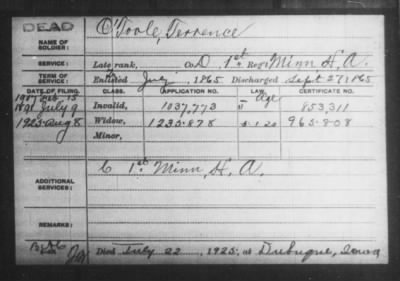 DEAD
NAME OF SOLDIER: O'Toole, Terrence
SERVICE: Late rank, Co. D, 1st Reg't Minn H. A.
TERM OF SERVICE: Enlisted July, 1865 Discharged Sept 27, 1865
DATE OF FILING. CLASS. APPLICATION NO. LAW. CERTIFICATE NO.
1907 Feb. 15 Age
1891 July 9 Invalid, 1037,773 853,311
1925 Aug 8 Widow, 1235-878 5-1-20 965-808
Minor,
ADDITIONAL SERVICES: C 1st Minn, H. A.
REMARKS:
Died July 22, 1925, at Dubuque, Iowa